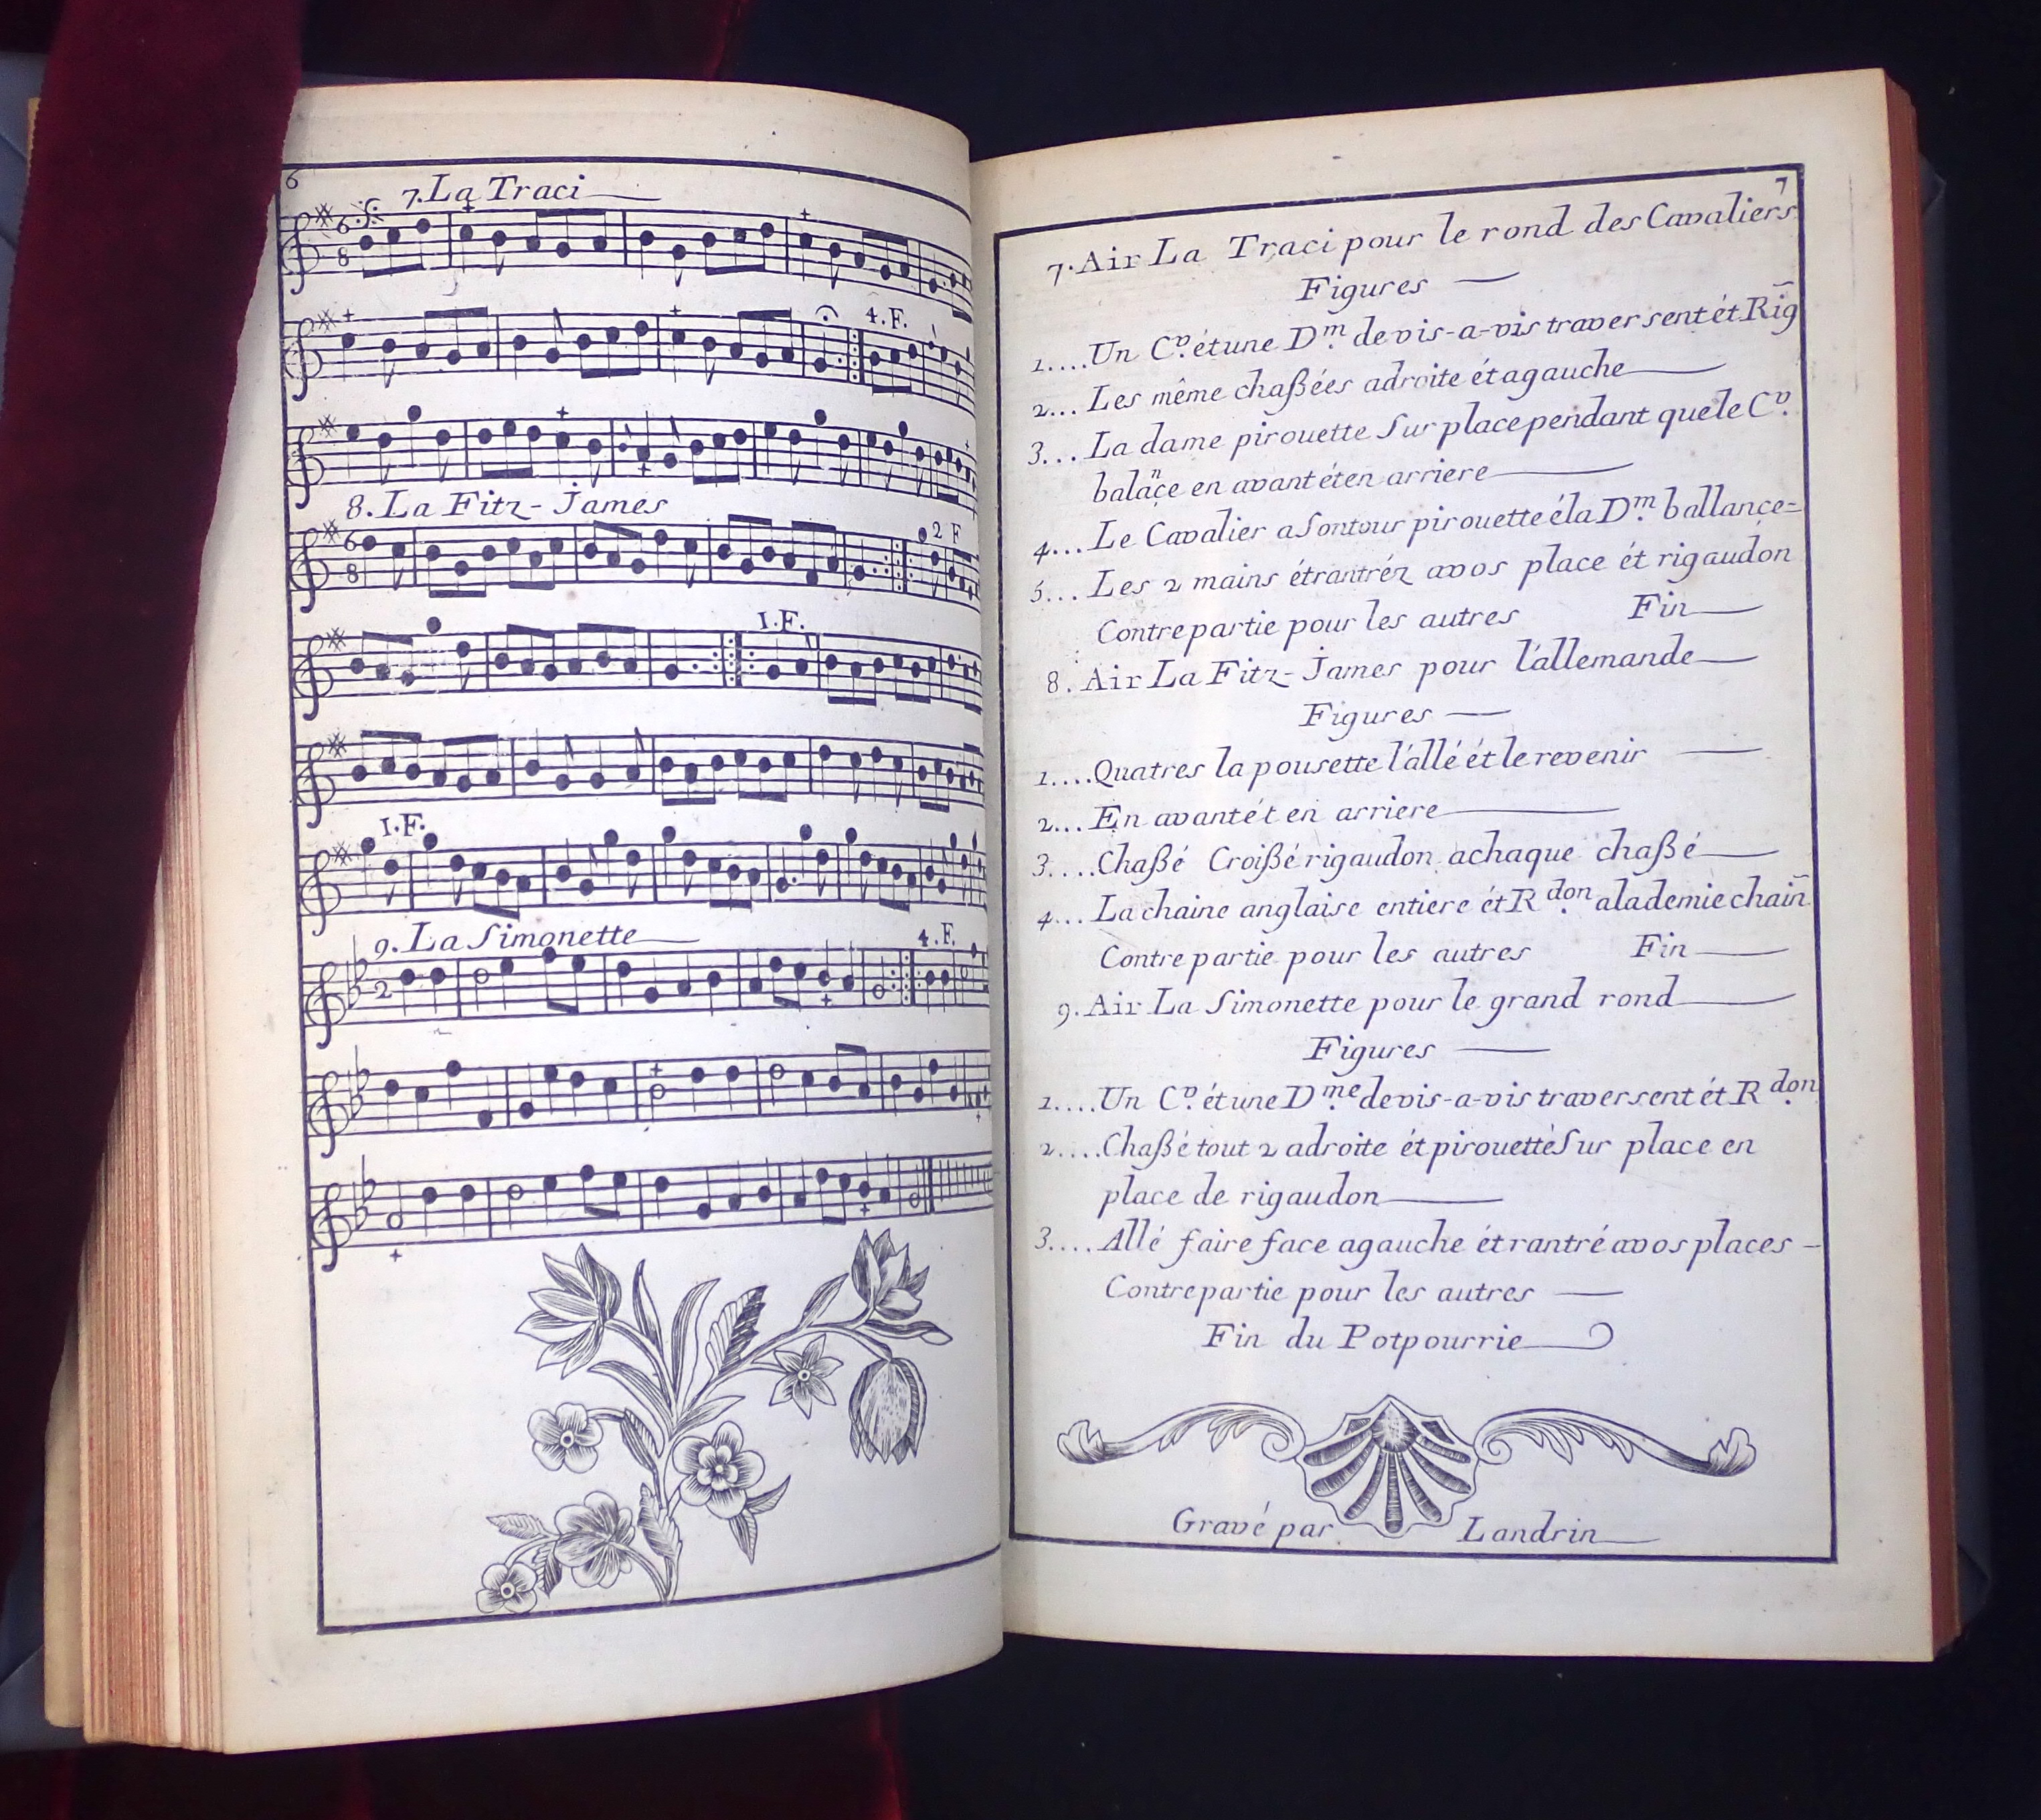 6
7. La Traci
4. F.
8. La Fitz-James
6
8
2 F
1. F.
1. F.
9. La Simonette
4. F.
2
7
7. Air La Traci pour le rond des Cavaliers
Figures
1.... Un Cv. ét une Dm. de vis-a-vis traversent ét Rig̃
2... Les même chaßées adroite ét agauche
3... La dame pirouette Sur place pendant que le Cv.
balançe en avant ét en arriere
4... Le Cavalier a Son tour pirouette é la Dm. ballançe=
5... Les 2 mains ét rantréz avos place ét rigaudon
Contre partie pour les autres Fin
8. Air La Fitz-James pour l'allemande
Figures
1.... Quatres la pousette l'allé ét le revenir
2... En avant ét en arriere
3.... Chaßé Croißé rigaudon achaque chaßé
4... La chaine anglaise entiere ét Rdon. alademie chaiñ
Contre partie pour les autres Fin
9. Air La Simonette pour le grand rond
Figures
1.... Un Cv. ét une Dme. de vis-a-vis traversent ét Rdon.
2.... Chaßé tout 2 adroite ét pirouetté Sur place en
place de rigaudon
3.... Allé faire face agauche ét rantré avos places -
Contre partie pour les autres
Fin du Potpourrie
Gravé par Landrin